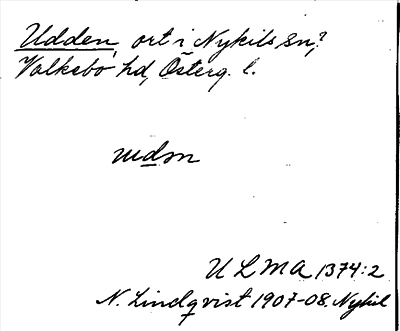 Udden, ort i Nykils sn,?
Valkebo hd, Österg. l.
ULMA 1374:2
N. Lindqvist 1907-08. Nykil